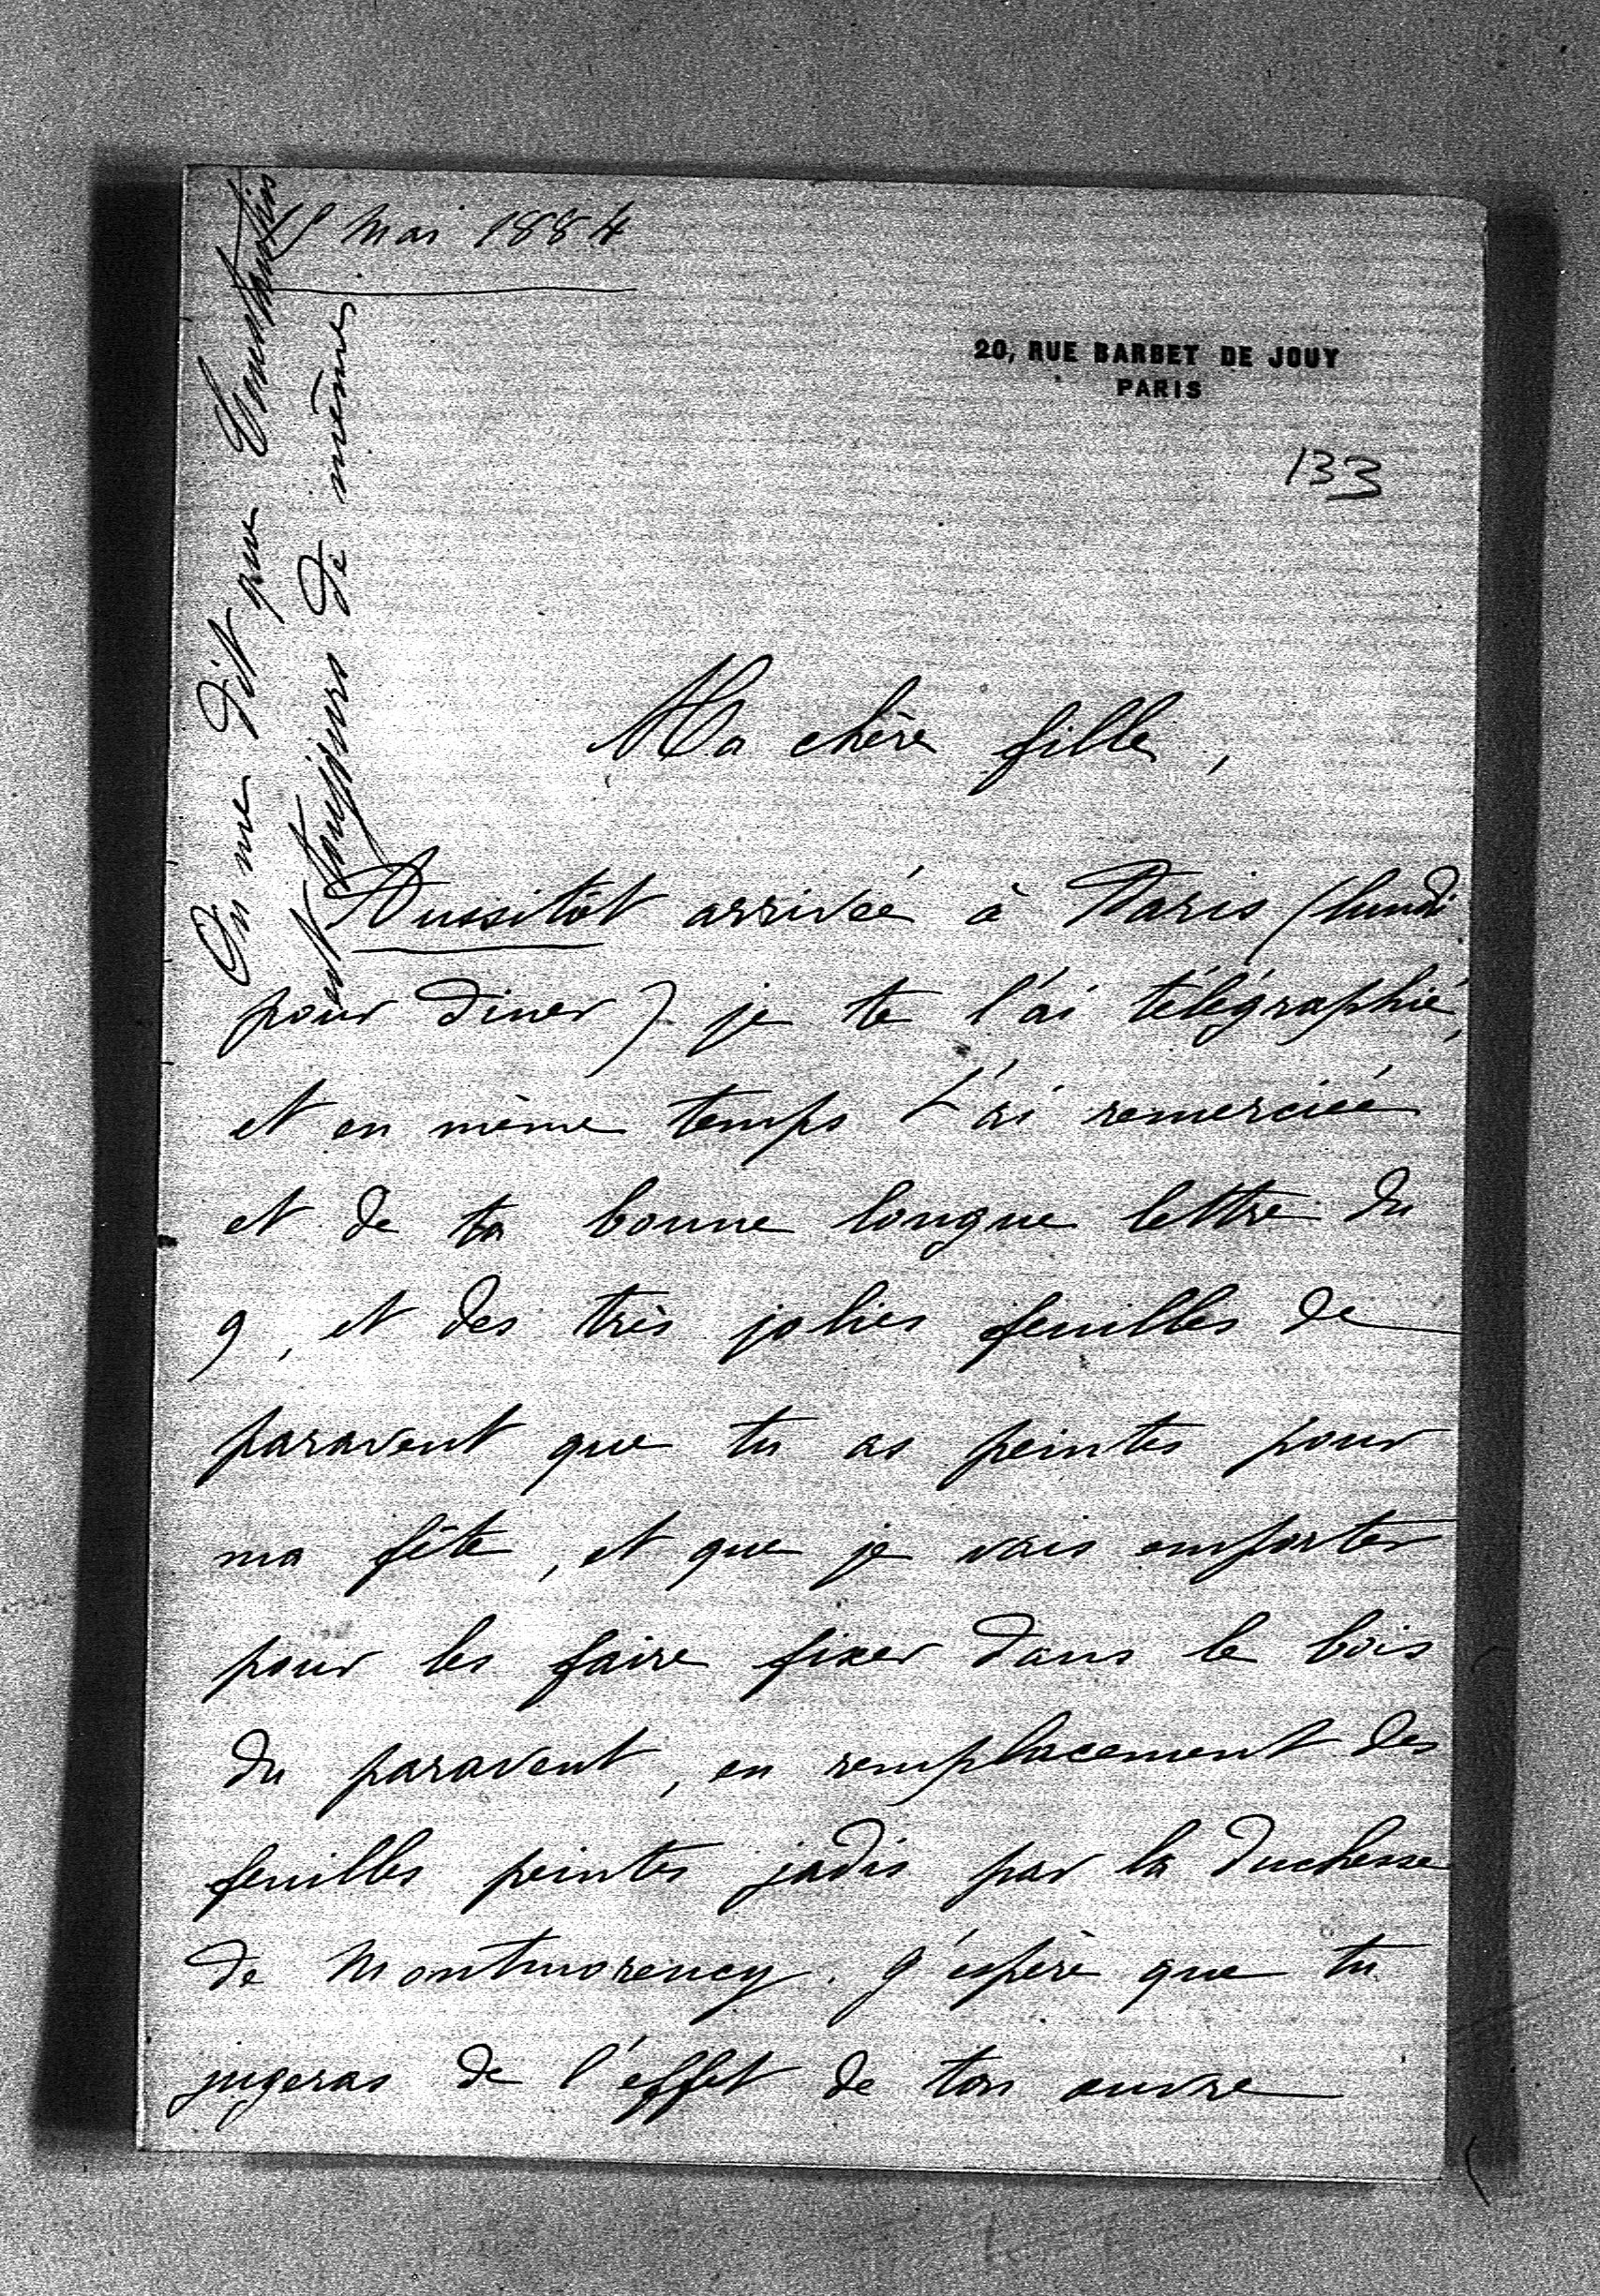 Mai 1884
20, RUE BARBET DE JOUY
PARIS
133
Ma chère fille,
Aussitôt arrivée à Paris (lundi
pour diner) je te l'ai télégraphié,
et en même temps t'ai remerciée
et de ta bonne longue lettre du
9, et des très jolies feuilles de
paravent que tu as peintes pour
ma fête, et que je vais emporter
pour les faire fixer dans le bois
du paravent, en remplacement des
feuilles peintes jadis par la Duchesse
de Montmorency. J'espère que tu
jugeras de l'effet de ton œuvre
On me dit que Constantin
est toujours de même.